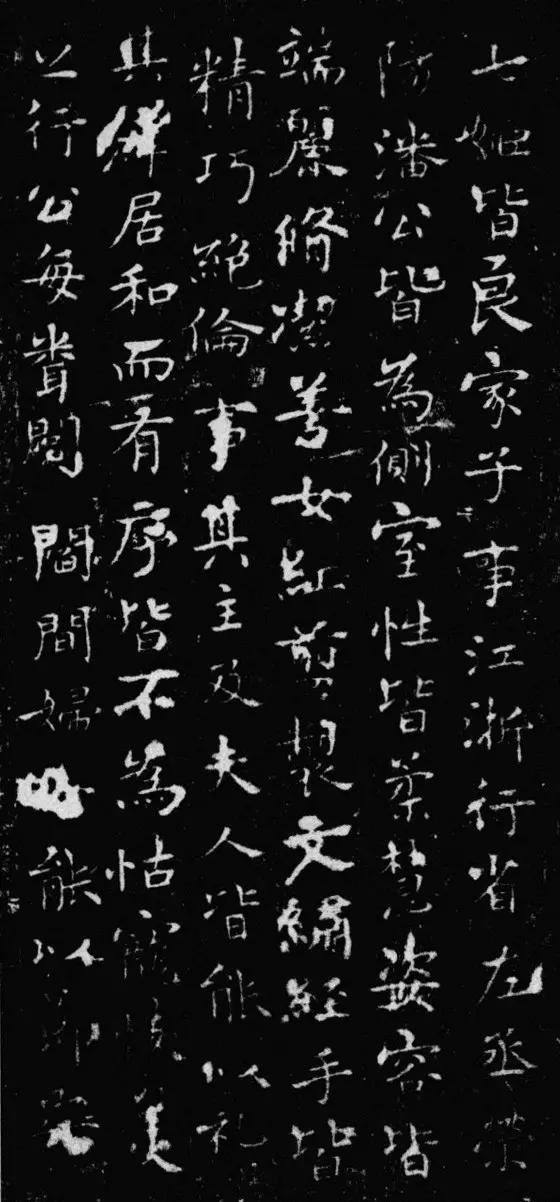 七姬皆良家子事江浙行省左丞滎
陽潘公皆為側室性皆柔慧姿容皆
端麗脩潔善女紅剪製文繡經手皆
精巧絕倫事其主及夫人皆能以礼
其羣居和而有序皆不為怙寵忮美
之行公每閭閻間婦能以節